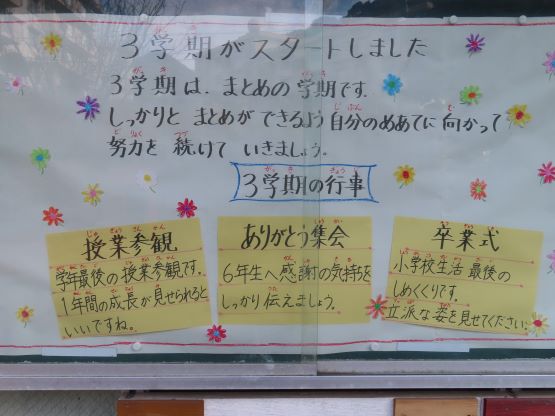 3学期がスタートしました
3学期は、まとめの学期です。
しっかりと まとめが できるよう 自分のめあてに 向かって
努力を 続けて いきましょう。
3学期の行事
授業参観
学年最後の授業参観です。
1年間の成長が見せられると
いいですね。
ありがとう集会
6年生へ感謝の気持ちを
しっかり伝えましょう。
卒業式
小学校生活 最後の
しめくくりです。
立派な姿を見せてください。